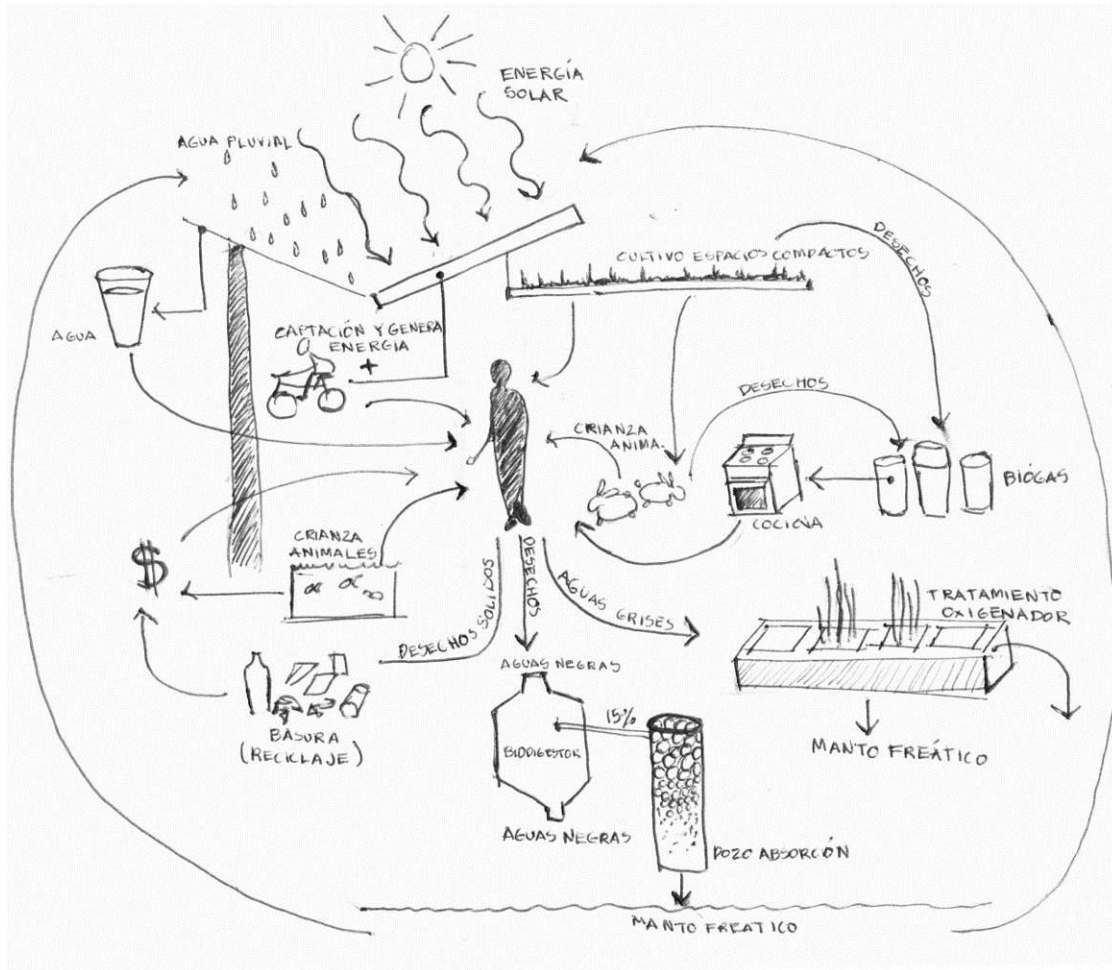 ENERGÍA
SOLAR
AGUA PLUVIAL
CULTIVO ESPACIOS COMPACTOS
DESECHOS
AGUA
CAPTACIÓN Y GENERA
ENERGÍA
+
DESECHOS
CRIANZA
ANIMA.
BIÓGAS
COCICNA
$
CRIANZA
ANIMALES
DESECHOS SOLIDOS
DESECHOS
AGUAS GRISES
TRATAMIENTO
OXIGENADOR
AGUAS NEGRAS
BÁSURA
(RECICLAJE)
15%
BIODIGESTOR
MANTO FREÁTICO
AGUAS NEGRAS
POZO ABSORCIÓN
MANTO FREATICO